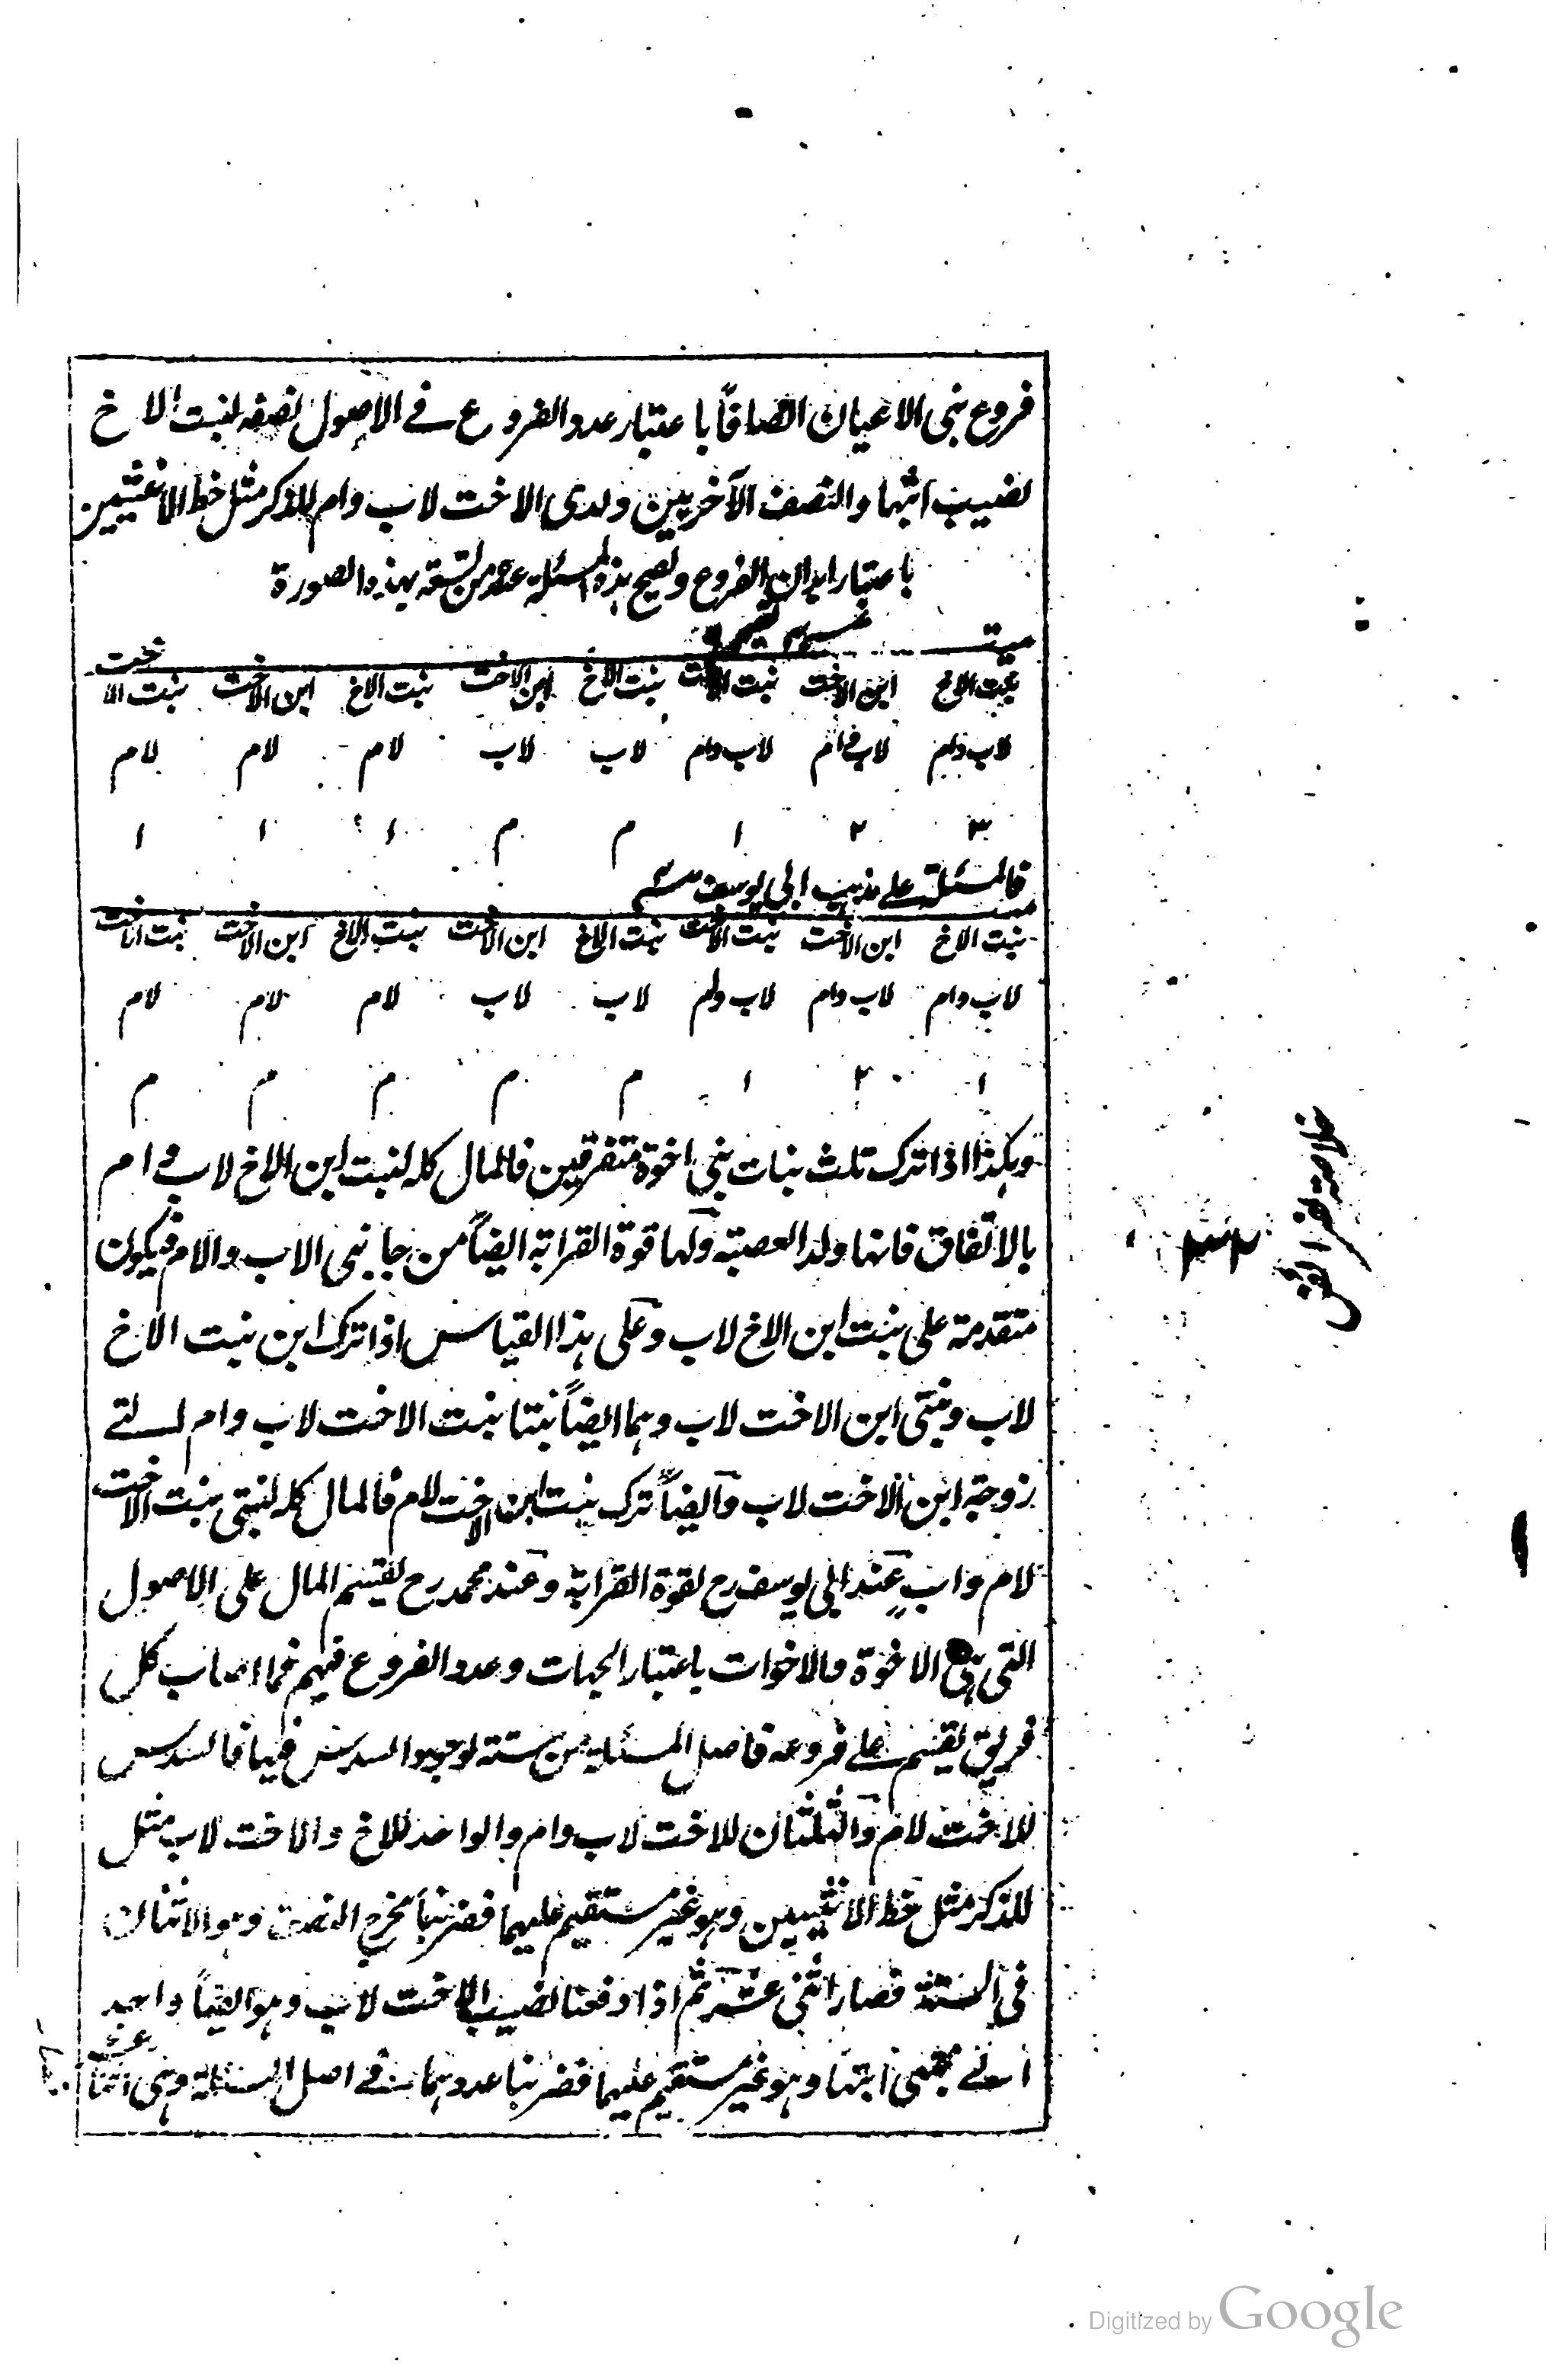 فروع بنى الاعيان انصافاً باعتبار عدد الفروع فے الاصول نصفه لبنت الاخ
نصيب ابيها والنصف الآخر بين ولدى الاخت لاب وام للذكر مثل حظ الانثيين
باعتبار ابدان الفروع وتصح هذه المسئلة عنده من تسعة بهذه الصورة
ميت
بنت الاخ ابن الاخت بنت الاخت بنت الاخ ابن الاخت بنت الاخ ابن الاخت بنت الاخت
لاب وام لاب وام لاب وام لاب لاب لام لام لام
٣ ٢ ١ م م ١ ١ ١
فالمسئلة على مذهب ابى يوسف
بنت الاخ ابن الاخت بنت الاخت بنت الاخ ابن الاخت بنت الاخ ابن الاخت بنت الاخت
لاب وام لاب وام لاب وام لاب لاب لام لام لام
١ ٢ ١ م م م م م
وهكذا اذا ترك ثلث بنات بنى اخوة متفرقين فالمال كله لبنت ابن الاخ لاب و ام
بالاتفاق فانها ولد العصبة ولها قوة القرابة ايضاً من جانبى الاب والام فيكون
متقدمة على بنت ابن الاخ لاب وعلى هذا القياس اذا ترك ابن بنت الاخ
لاب وبنتى ابن الاخت لاب وهما ايضاً بنتا بنت الاخت لاب وام لتے
زوجة ابن الاخت لاب وايضاً ترك بنت ابن الاخت لام فالمال كله لبنتى بنت الاخت
لام واب عند ابى يوسف رح لقوة القرابة وعند محمد رح يقسم المال على الاصول
التى هى الاخوة والاخوات باعتبار الجهات وعدد الفروع فيهم فما اصاب كل
فريق يقسم على فروعه فاصل المسئلة من ستة لوجود السدس فيها فالسدس
للاخت لام والثلثان للاخت لاب وام والواحد للاخ والاخت لاب مثل
للذكر مثل حظ الانثيين وهو غير مستقيم عليهما فضربنا مخرج النصف وهو الاثنان
فى الستة فصار اثنى عشر ثم اذا دفعنا نصيب الاخت لاب وهو ايضاً واحد
الے بنتى ابنها وهو غير مستقيم عليهما فضربنا عددهما فے اصل المسئلة وهى اثنا عشر
٢٣٢